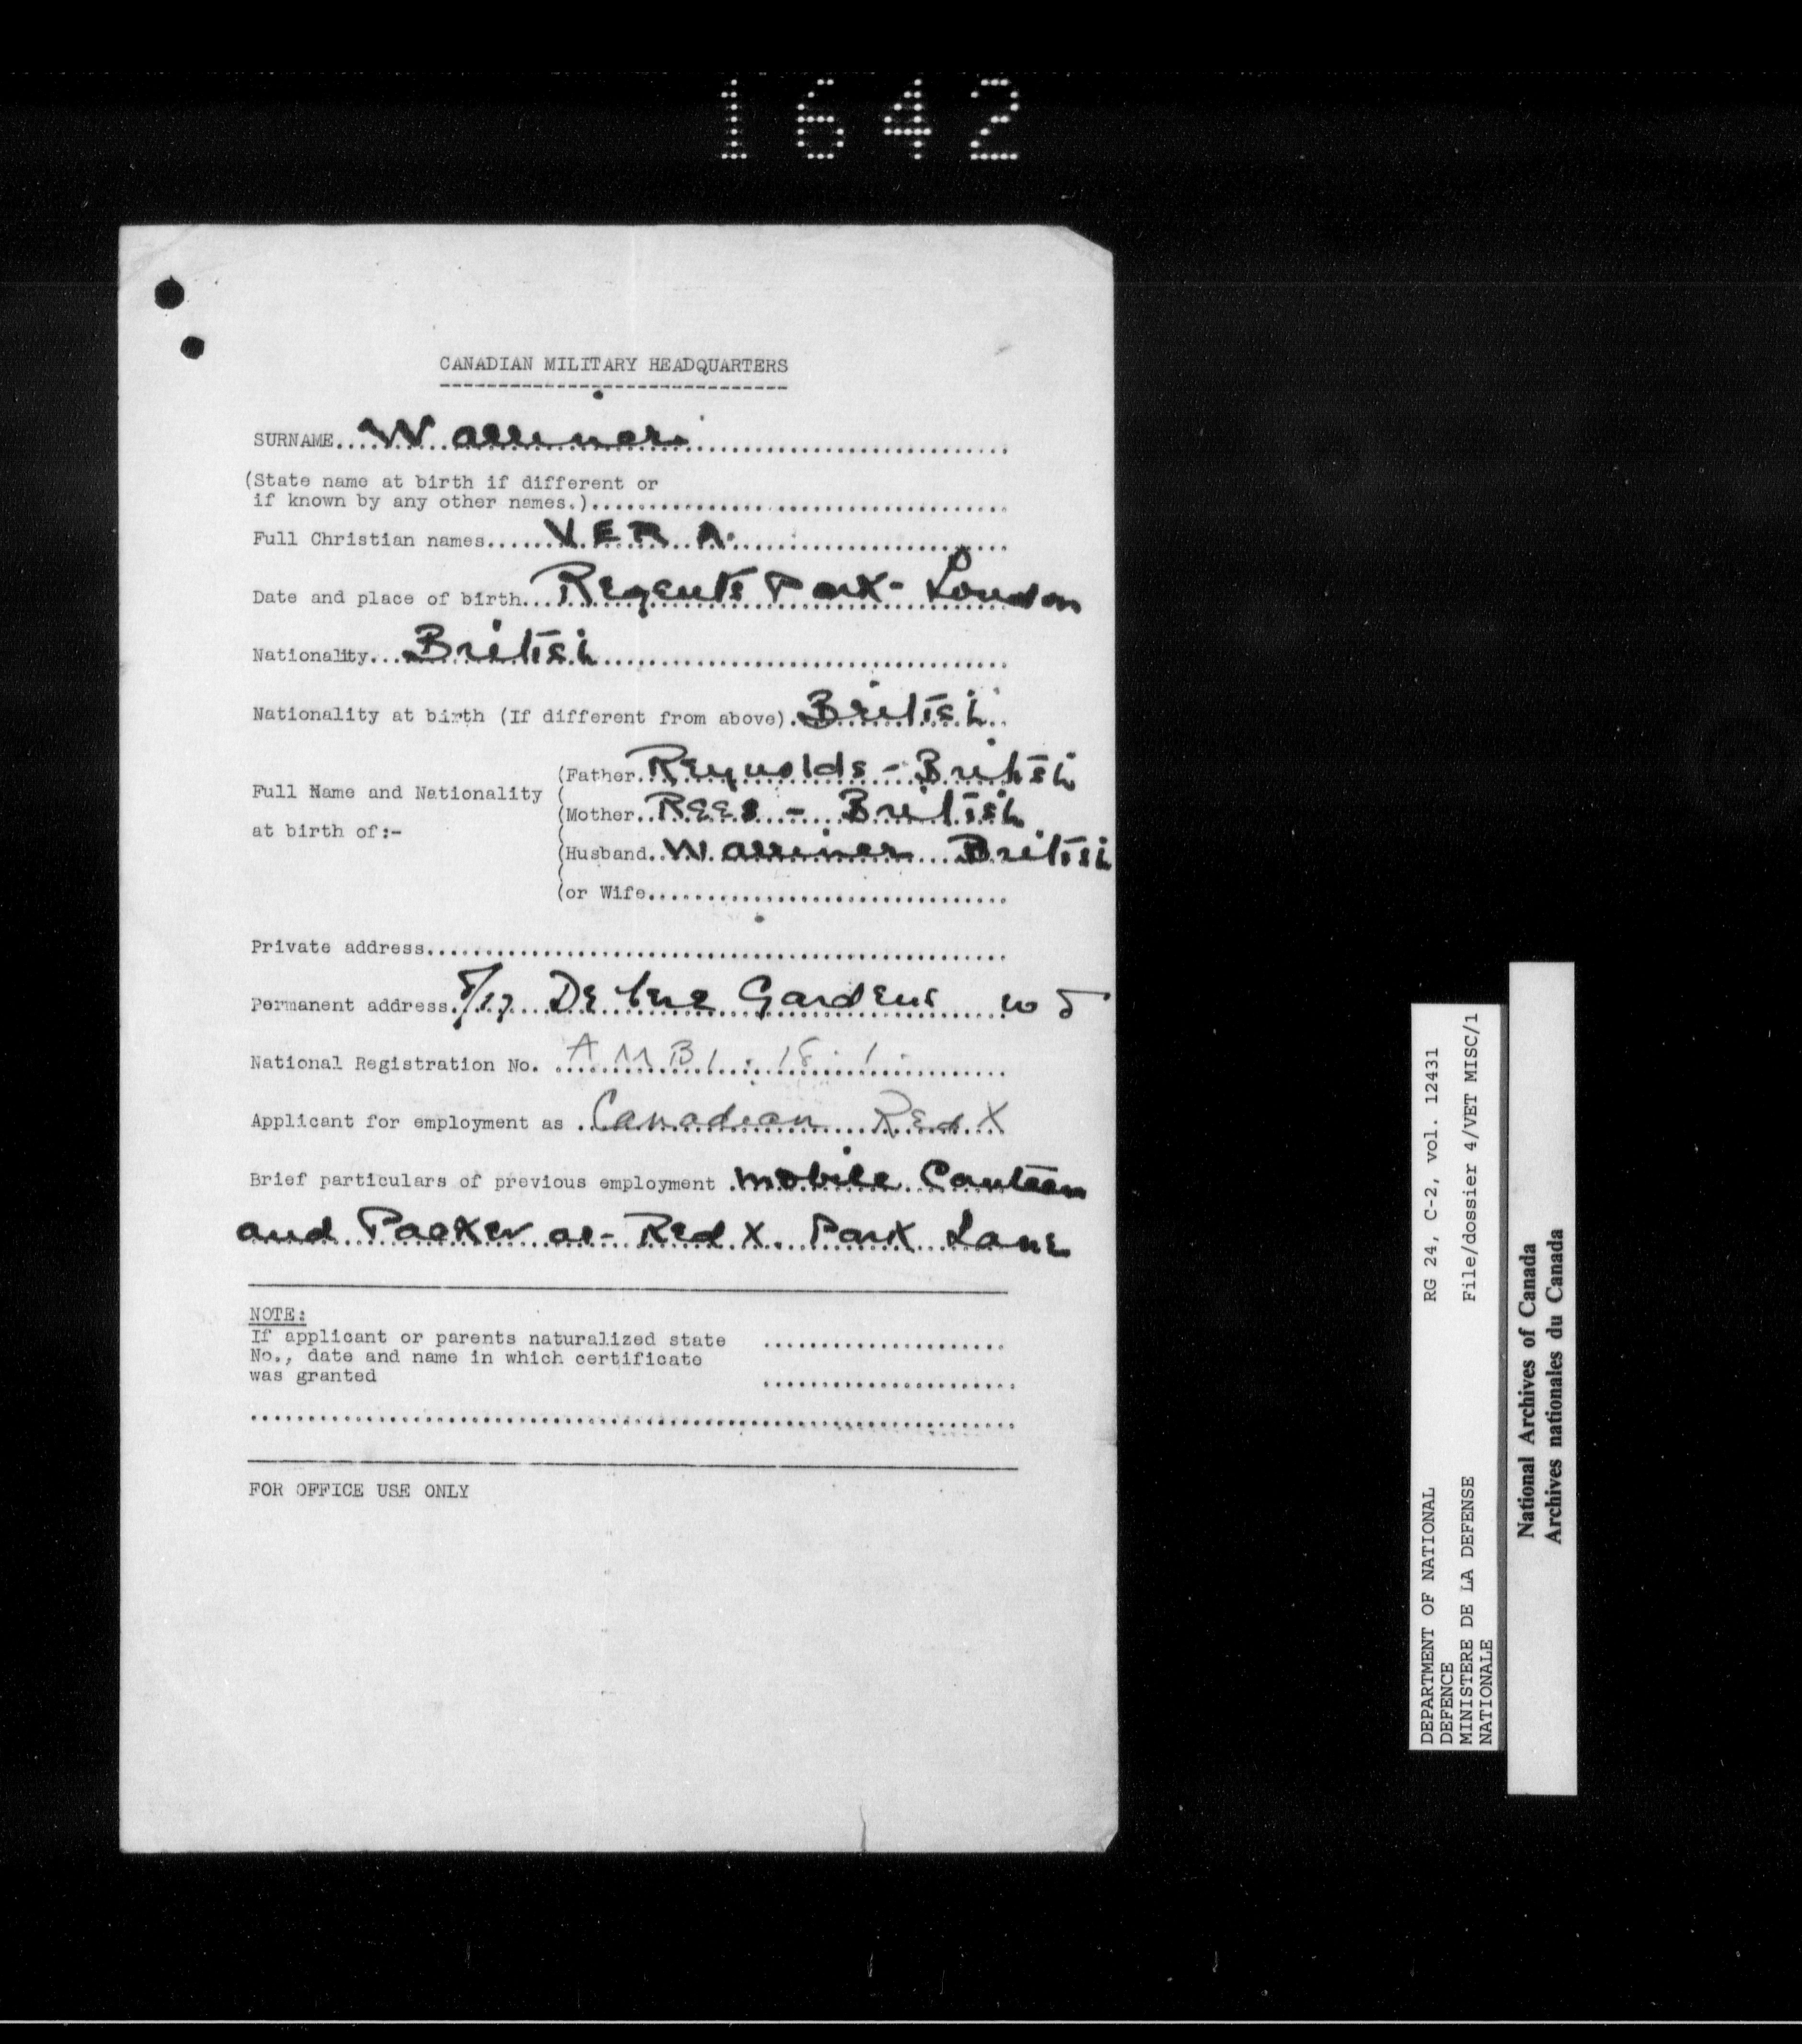 1642
CANADIAN MILITARY HEADQUARTERS
SURNAME....Warriner
(State name at birth if different or
if known by any other names.)
Full Christian names......VERA.
Date and place of birth...Regents Park - London
Nationality....British
Nationality at birth (If different from above).British
(Father..Reynolds - British
Full Name and Nationality
(Mother..Rees - British
at birth of:-
(Husband..Warriner British
(or Wife
Private address
Permanent address. De Vere Gardens W 8
National Registration No. AMB1.
Applicant for employment as .Canadian Red X
Brief particulars of previous employment .mobile Canteen
and Packer at - Red X. Park Lane
NOTE:
If applicant or parents naturalized state
No., date and name in which certificate
was granted
FOR OFFICE USE ONLY
DEPARTMENT OF NATIONAL RG 24, C-2, vol. 12431
DEFENCE
MINISTERE DE LA DEFENSE File/dossier 4/VET MISC/1
NATIONALE
National Archives of Canada
Archives nationales du Canada